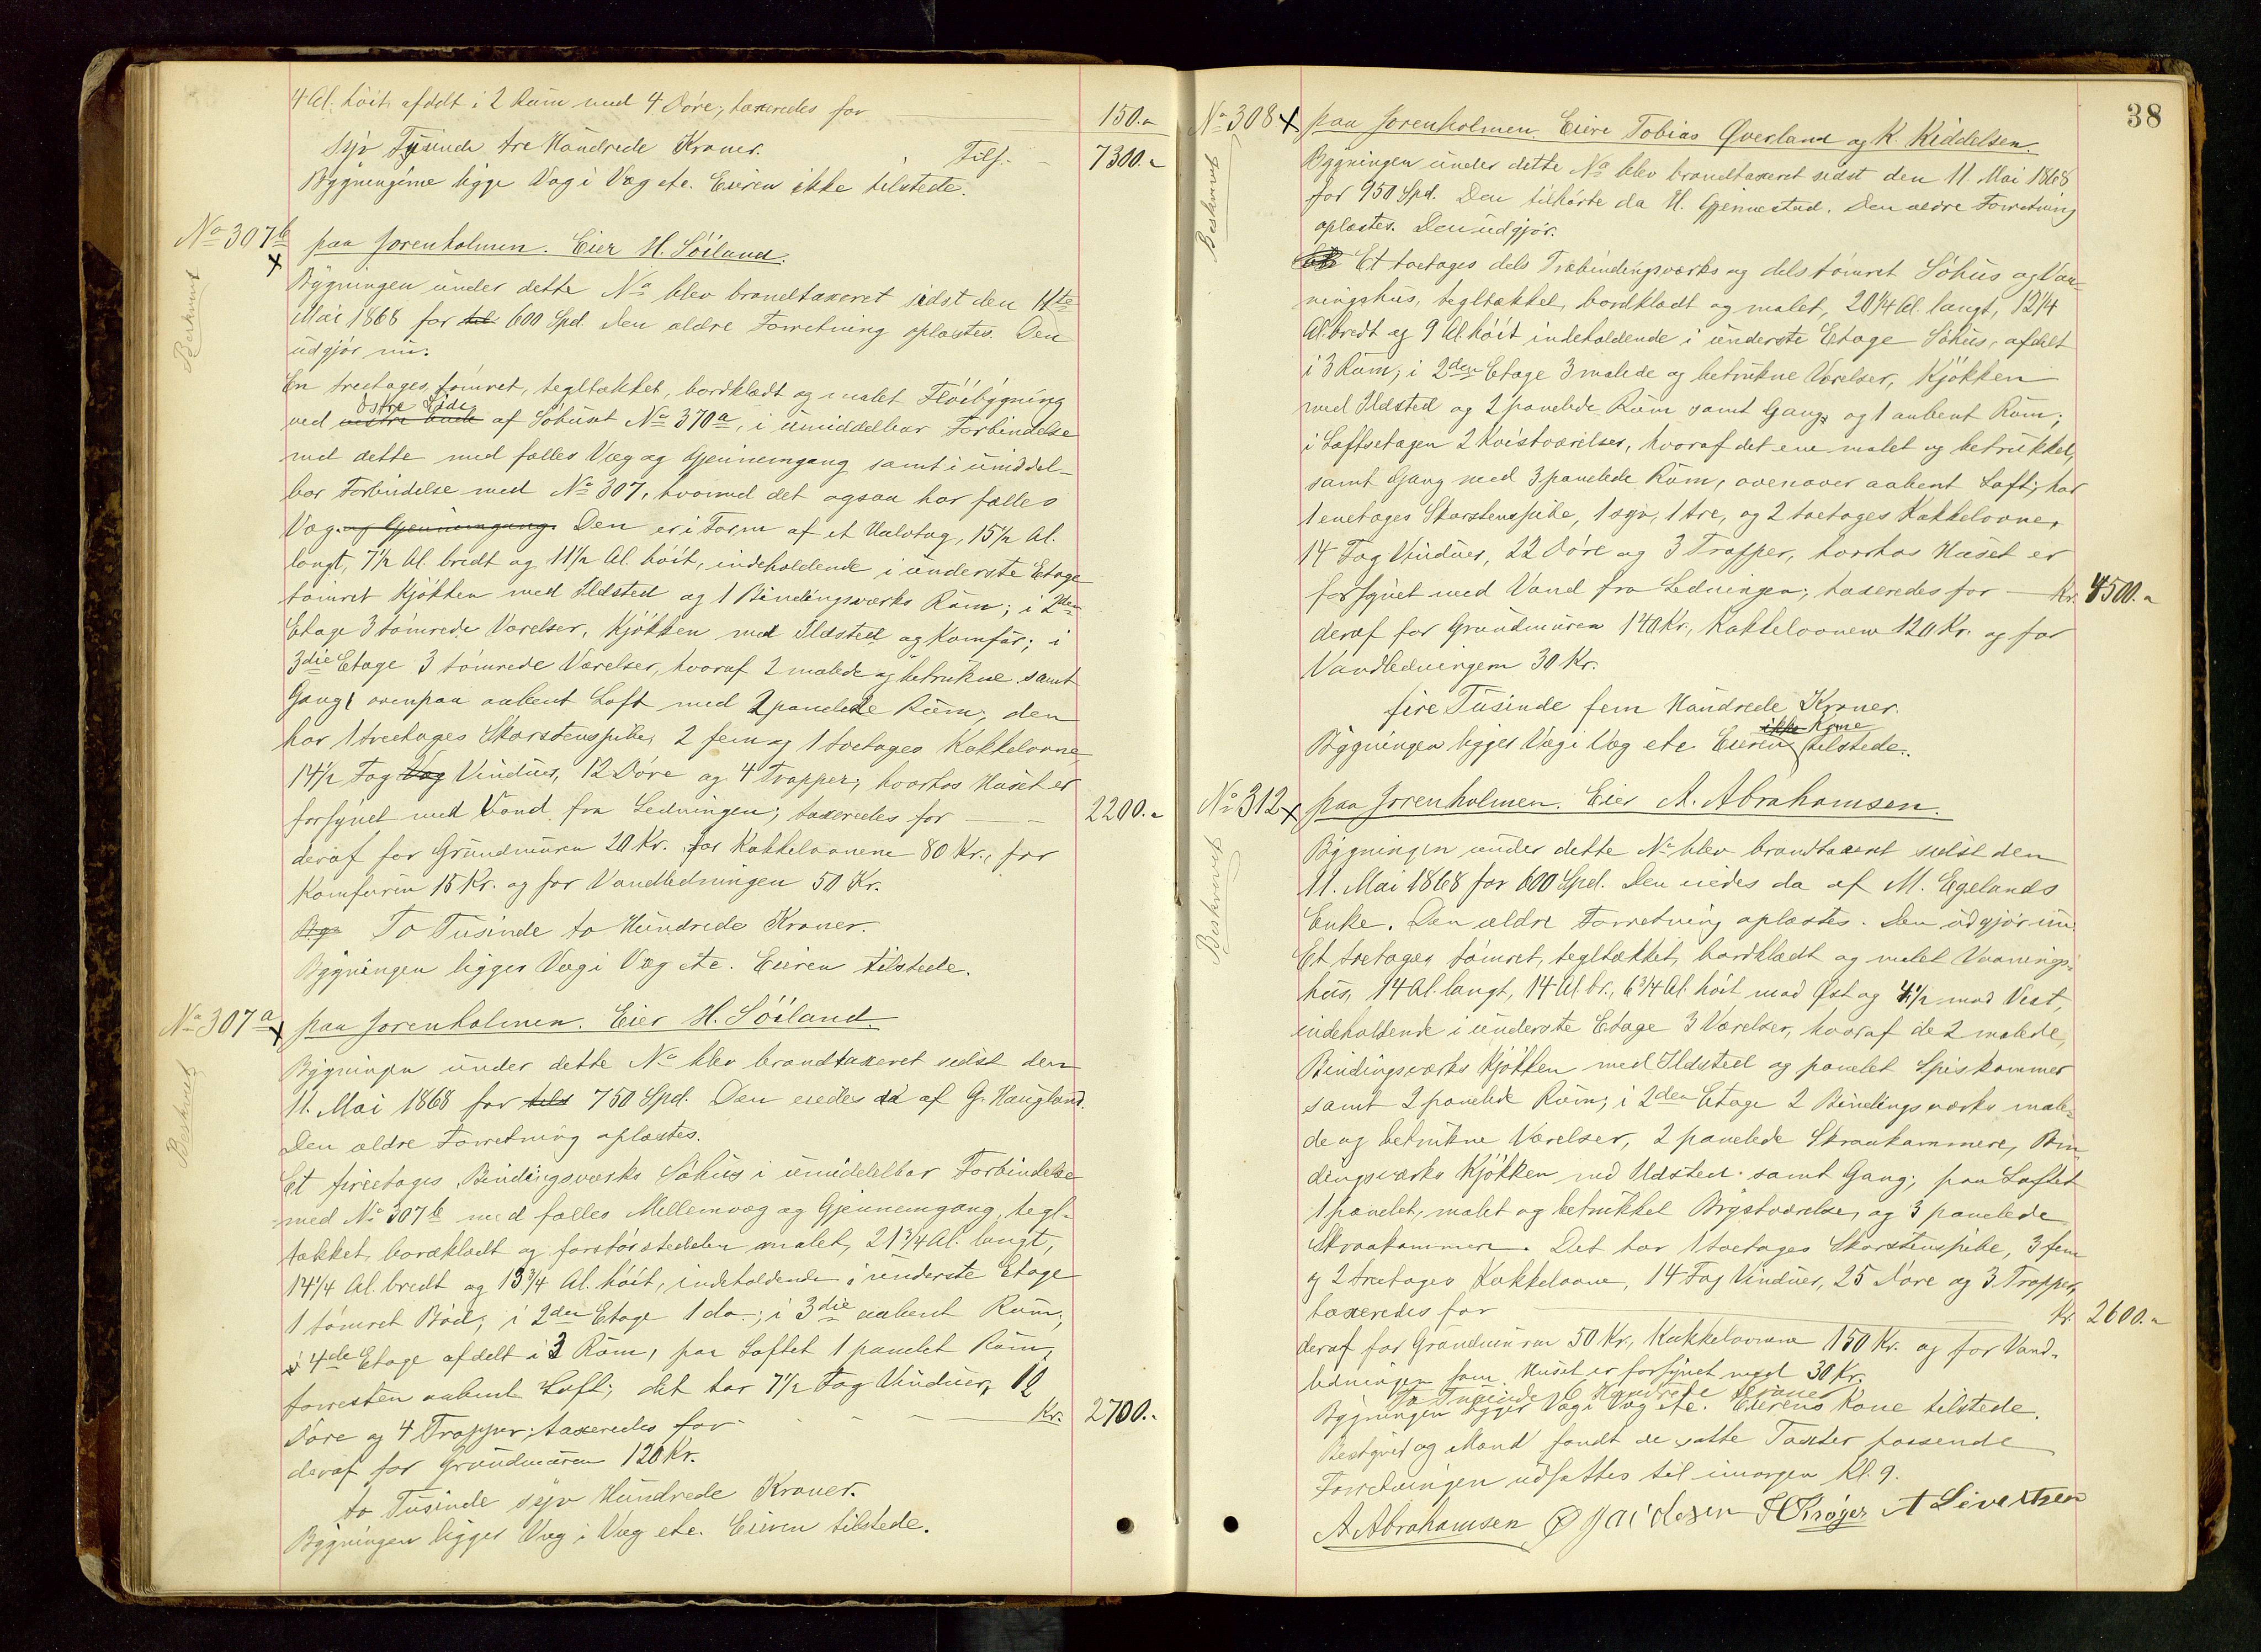 4 Al. höit, afdelt i 2 Rum med 4 Döre, taxeredes for 150.-
syv Tusinde tre Hundrede Kroner. Tils. - 7300.-
Bygningerne ligge Væg i Væg etc. Eieren ikke tilstede.
No 307b paa Jorenholmen. Eier H. Söiland.
Beskrevet
Bygningen under dette No blev brandtaxeret sidst den 11te
Mai 1868 for til 600 Spd. Den ældre Forretning oplæstes. Den
udgjör nu:
En treetages, tömret, tegltækket, bordklædt og malet Flöibygning
östre Side
ved vestre Ende af Söhuset No 370a, i umiddelbar Forbindelse
med dette med fælles Væg og Gjennemgang samt i umiddel-
bar Forbindelse med No 307, hvormed det ogsaa har fælles
Væg og Gjennemgang. Den er i Form af et Halvtag, 15 1/2 Al.
langt, 7 1/2 Al. bredt og 11 1/2 Al. höit, indeholdende i underste Etage
tömret Kjökken med Ildsted og 1 Bindingsværks Rum; i 2den
Etage 3 tömrede Værelser, Kjökken med Ildsted og Komfur; i
3die Etage 3 tömrede Værelser, hvoraf 2 malede og betrukne samt
Gang, ovenpaa aabent Loft med 2 panelede Rum; den
har 1 treetages Skorstenspibe, 2 fem og 1 toetages Kakkelovne
14 1/2 Fag Væg Vinduer, 12 Döre og 4 Trapper; hvorhos Huset er
forsynet med Vand fra Ledningen; taxeredes for - - 2200.-
deraf for Grundmuren 20 Kr. for Kakkelovnene 80 Kr., for
Komfuren 15 Kr. og for Vandledningen 50 Kr.
Byg To Tusinde to Hundrede Kroner.
Bygningen ligger Væg i Væg etc. Eieren tilstede.
No 307a paa Jorenholmen. Eier H. Söiland
Beskrevet
Bygningen under dette No blev brandtaxeret sidst den
11. Mai 1868 for tils 750 Spd. Den eiedes da af G. Haugland.
Den ældre Forretning oplæstes.
Et fireetages Bindingsværks Söhus i umiddelbar Forbindelse
med No 307b med fælles Mellemvæg og Gjennemgang, tegl-
tækket, bordklædt og forstörstedelen malet, 21 3/4 Al. langt,
14 1/4 Al. bredt og 13 3/4 Al. höit, indeholdende i underste Etage
1 tömret Bod; i 2den Etage 1 do.; i 3die aabent Rum;
i 4de Etage afdelt i 3 Rum, paa Loftet 1 panelet Rum,
forresten aabent Loft; det har 7 1/2 Fag Vinduer, 12
Döre og 4 Trapper; taxeredes for - - - Kr. 2700.-
deraf for Grundmuren 120 Kr.
to Tusinde syv Hundrede Kroner.
Bygningen ligger Væg i Væg etc. Eieren tilstede.
38
No 308 paa Jorenholmen. Eiere Tobias Øverland og K. Kiddelsen.
Beskrevet
Bygningen under dette No blev brandtaxeret sidst den 11. Mai 1868
for 950 Spd. Den tilhörte da H. Gjennestad. Den ældre Forretning
oplæstes. Den udgjör.
Et toetages dels Træbindingsværks og dels tömret Söhus og Vaa-
ningshus, tegltækket, bordklædt og malet, 20 1/4 Al. langt, 12 1/4
Al. bredt og 9 Al. höit indeholdende i underste Etage Söhus, afdelt
i 3 Rum; i 2den Etage 3 malede og betrukne Værelser, Kjökken
med Ildsted og 2 panelede Rum samt Gang og 1 aabent Rum;
i Loftsetagen 2 Kvistværelser, hvoraf det ene malet og betrukket,
samt Gang med 3 panelede Rum, ovenover aabent Loft; har
1 enetages Skorstenspibe, 1 syv, 1 tre, og 2 toetages Kakkelovne,
14 Fag Vinduer, 22 Döre og 3 Trapper, hvorhos Huset er
forsynet med Vand fra Ledningen; taxeredes for - Kr. 4500.-
deraf for Grundmuren 140 Kr., Kakkelovnene 120 Kr. og for
Vandledningen 30 Kr.
fire Tusinde fem Hundrede Kroner.
ikke Kone
Bygningen ligger Væg i Væg etc. Eieren tilstede.
No 312 paa Jorenholmen. Eier A. Abrahamsen.
Beskrevet
Bygningen under dette No blev brandtaxeret sidst den
11. Mai 1868 for 600 Spd. Den eiedes da af M. Egelands
Enke. Den ældre Forretning oplæstes. Den udgjör nu.
Et toetages tömret, tegltækket, bordklædt og malet Vaanings-
hus, 14 Al. langt, 14 Al. br., 6 3/4 Al. höit mod Øst og 4 1/2 mod Vest,
indeholdende i underste Etage 3 Værelser, hvoraf de 2 malede,
Bindingsværks Kjökken med Ildsted og panelet Spiskammer
samt 2 panelede Rum; i 2den Etage 2 Bindingsværks male-
de og betrukne Værelser, 2 panelede Skraakammere, Bin
dingsværks Kjökken med Ildsted samt Gang; paa Loftet
1 panelet, malet og betrukket Brystværelse, og 3 panelede
Skraakammere. Det har 1 toetages Skorstenspibe, 3 fem
og 2 treetages Kakkelovne, 14 Fag Vinduer, 25 Döre og 3 Trapper,
taxeredes for Kr. 2600.-
deraf for Grundmuren 50 Kr., Kakkelovnene 150 Kr. og for Vand-
ledningen som Huset er forsynet med 30 Kr.
To Tusinde 6 Hundrede Kroner
Bygningen ligger Væg i Væg etc. Eierens Kone tilstede.
Bestyrer og Mænd fandt de satte Taxter passende
Forretningen udsattes til imorgen Kl. 9.
A Abrahamsen H Kröger A Sivertsen